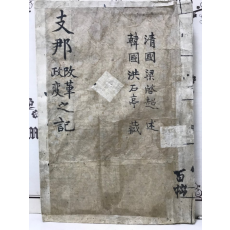 清國 梁啓超 述
韓國 洪石亭 藏
支那改革政變之記